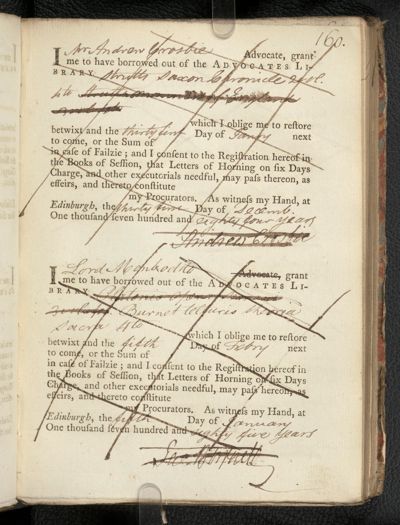 160.
I Mr Andrew Crosbie Advocate, grant
me to have borrowed out of the ADVOCATES LI-
BRARY Saxon Chronicle
4to
which I oblige me to restore
betwixt and the thirty first Day of Janry next
to come, or the Sum of
in case of Failzie; and I consent to the Registration hereof in
the Books of Session, that Letters of Horning on six Days
Charge, and other executorials needful, may pass thereon, as
effeirs, and thereto constitute
my Procurators. As witness my Hand, at
Edinburgh, the thirty first Day of Decemb.
One thousand seven hundred and eighty four years
Andrew Crosbie
I Lord Monboddo Advocate, grant
me to have borrowed out of the ADVOCATES LI-
BRARY
Burnet
Sacra 4to
which I oblige me to restore
betwixt and the fifth Day of Febry next
to come, or the Sum of
in case of Failzie; and I consent to the Registration hereof in
the Books of Session, that Letters of Horning on six Days
Charge, and other executorials needful, may pass hereon, as
effeirs, and thereto constitute
my Procurators. As witness my Hand, at
Edinburgh, the fifth Day of January
One thousand seven hundred and eighty five years